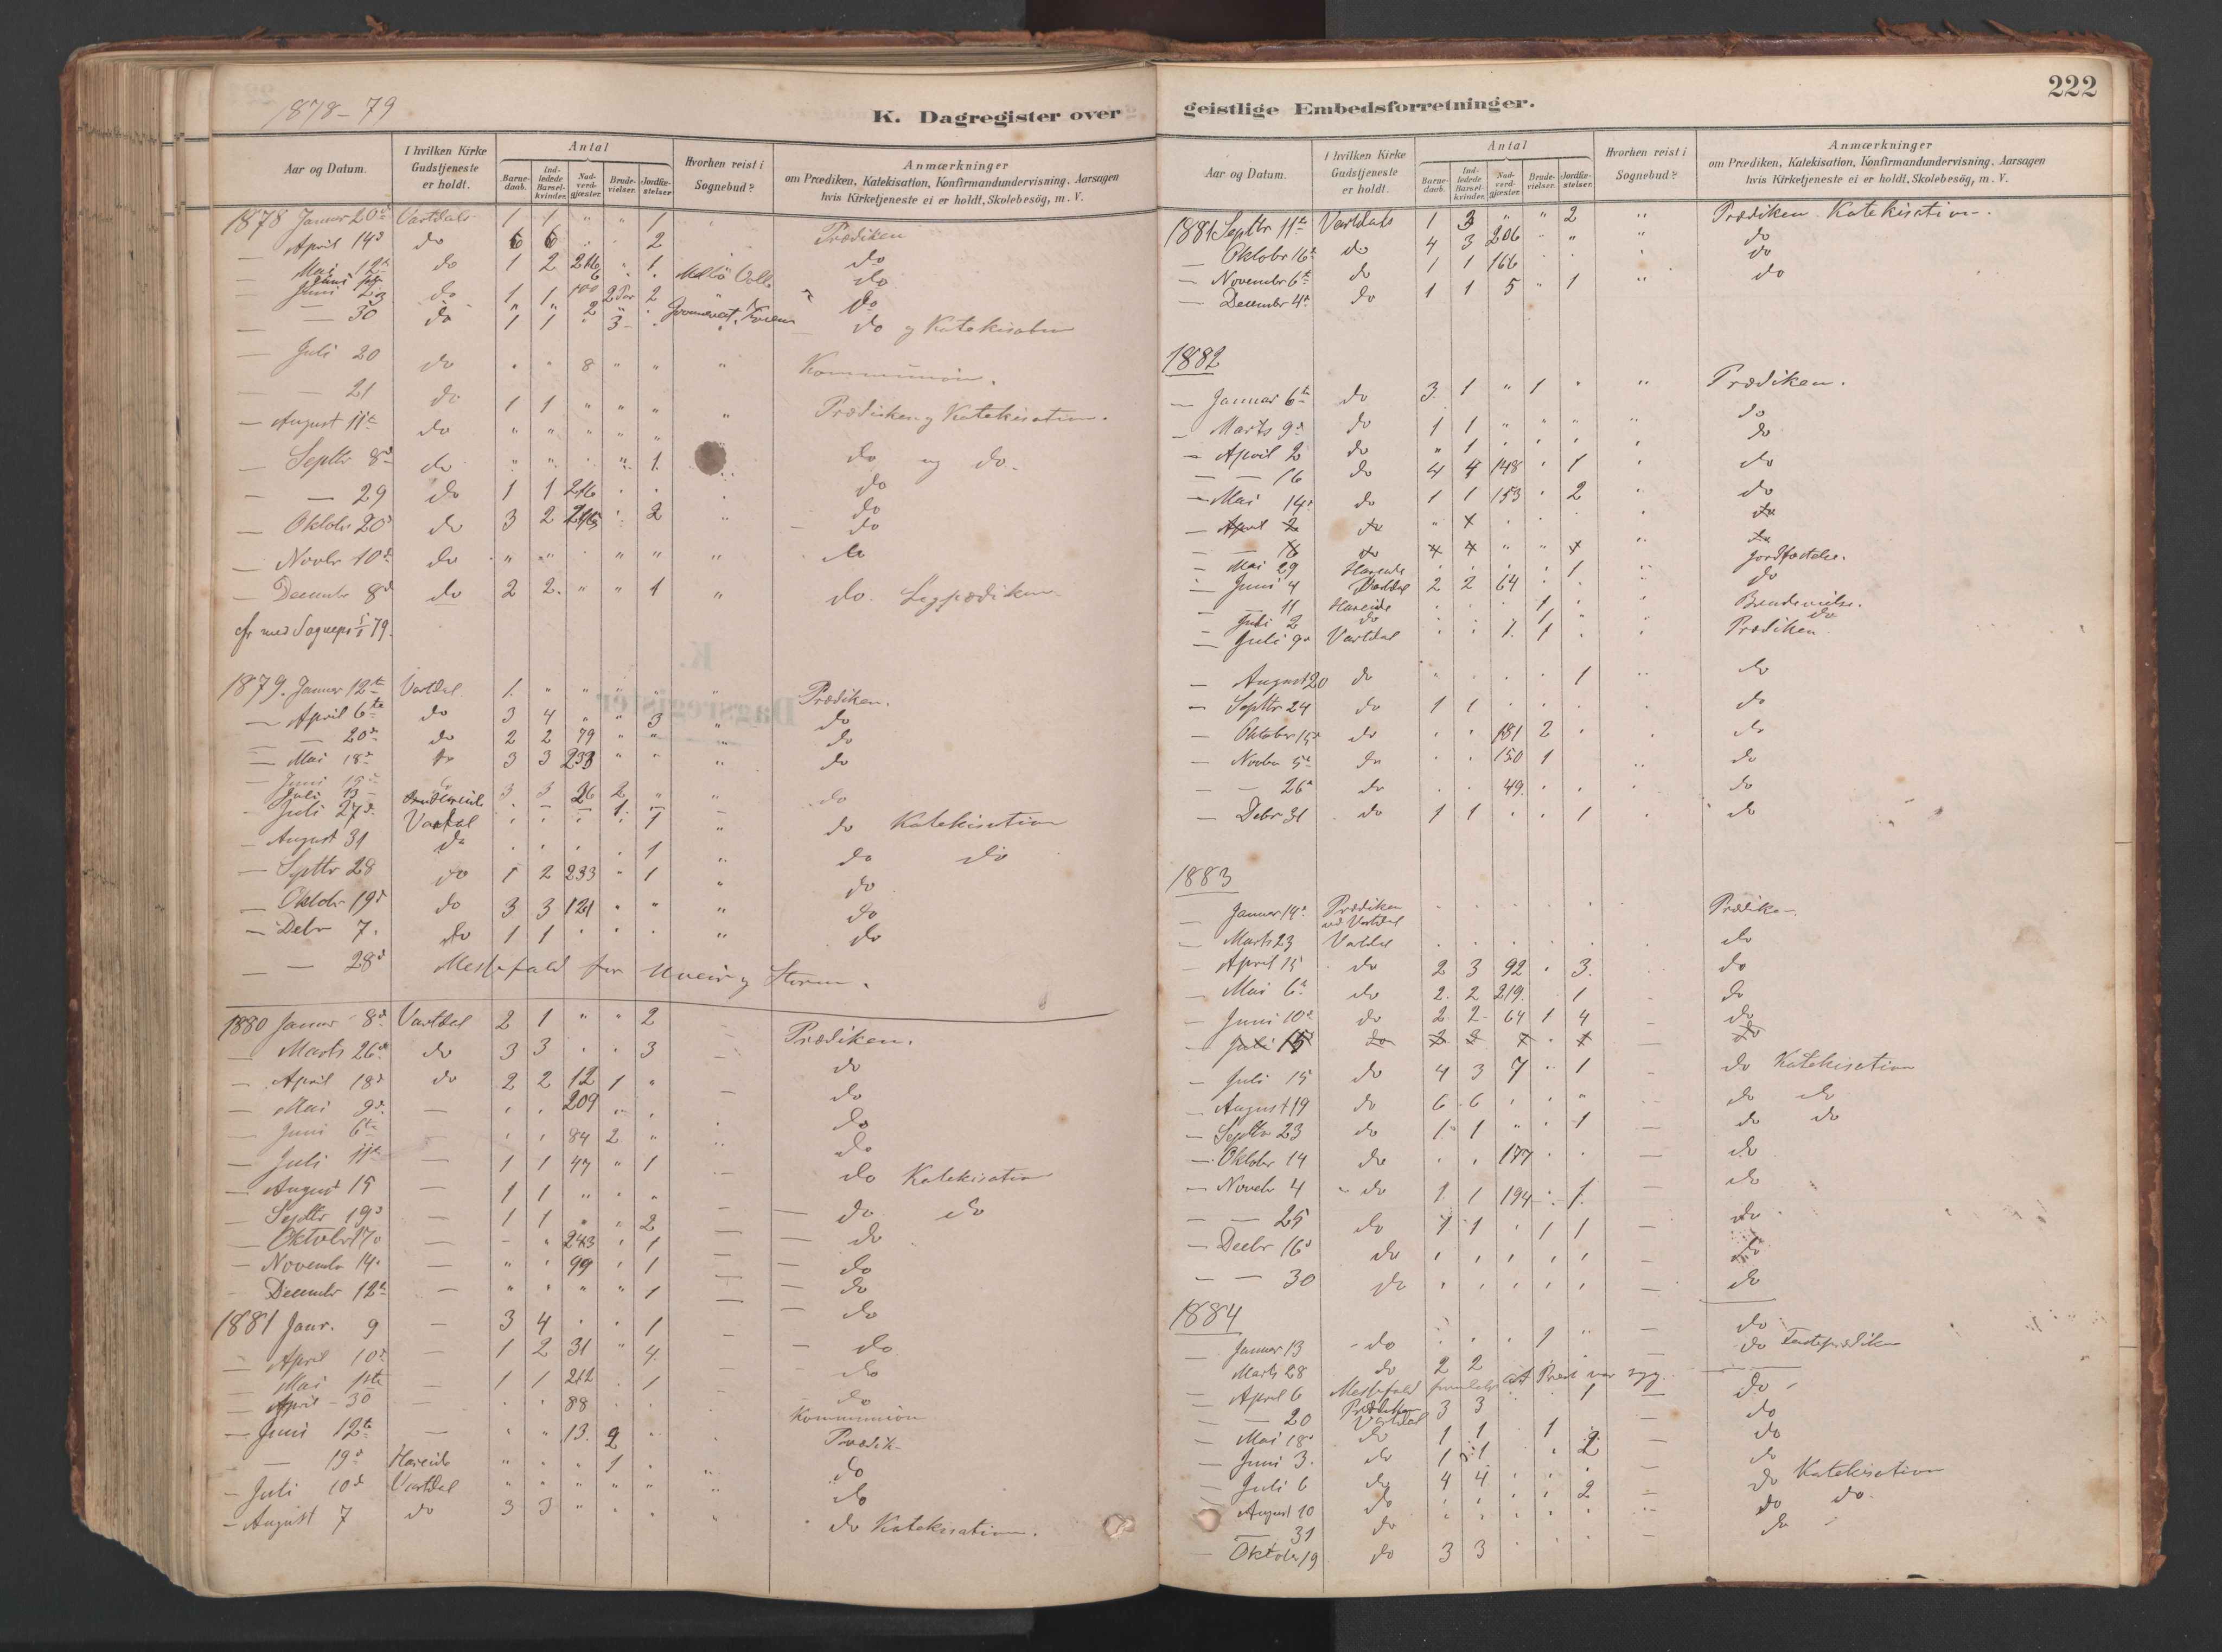 1878-79
K. Dagregister over
Aar og Datum. I hvilken Kirke Gudstjeneste er holdt. Antal Barnedaab. Indledede Barselkvinder. Nadverdgjæster. Brudevielser. Jordfæstelser Hvorhen reist i Sognebud? Anmærkninger om Prædiken, Katekisation, Konfirmandundervisning, Aarsagen hvis Kirketjeneste ei er holdt, Skolebesög, m. V.
1878 Januar 20de Vartdals 1 1 " " 1 Prædiken
— April 14d do 6 6 2 do
— Mai 12te do 1 2 216 " 1 do
— Juni 23 do 1 1 100 2 Par 2 do
— — 30 do 1 1 3 - do og Katekisation
— Juli 20 do " " 8 " " " Kommunion.
— — 21 do 1 1 " " " " Prædiken og Katekisation.
— August 11te do " " " " "
— Septbr 8d do " " " 1. do og do.
— — 29 do 1 1 216 do
— Oktobr 20d do 3 2 2 do
— Novbr 10d do " " " " " do
— Decembr 8d do 2 2. " " 1 " do.
1879. Januar 12te Vartdal 1. " " " " " Prædiken.
— April 6te do 3 4 " " 3 " do
— — 20d do 2 2 79 " " " do
— Mai 18d do 3 3 233 " " " do
— Juni 15d 3 3 26 2 " " do
— Juli 13 Hareide — — 1. — —
— Juli 27d Vartdal 1 " do Katekisation
— August 31 do 1 " do do
— Septbr 28 do 1 2 233 " 1 " do
— Oktobr 19d do 3 3 121 " " " do
— Debr 7. do 1 1 " do
— — 28d Messefald for Uveir og Storm.
1880 Januar 8d Vartdal 2 1 " " 2 — Prædiken.
— Marts 26d do 3 3 . . 3 — do
— April 18d do 2 2 12 1 " — do
— Mai 9d. — . . 209 . . do
— Juni 6te — . . 84 2 " do
— Juli 11te — 1 1 47 " 1 — do Katekisation
— August 15 — 1 1 " . " — do do
— Septbr 19d — 1 1 " . 2 — do
— Oktobr 17d — - " 243 . 1 — do
— Novembr 14. — " . 99 . 1 — do
— Decembr 12te — " " " " 1 — do
1881 Janr. 9 — 3 4 . . 1 — do
— April 10d — 1 2 31 " 4. — do
— Mai 1ste — 1 1 212 . 1 — do
— April 30 . . 88 . . Kommunion
— Juni 12te — . " 13. 2 . Prædik-
— 19d Hareide " " " 1 . " do
— Juli 10d Vartdal " " " " " " do
— August 7 do 3 3 " . . " do Katekisation.
222
geistlige Embedsforretninger.
Aar og Datum. I hvilken Kirke Gudstjeneste er holdt. Antal Barnedaab. Indledede Barselkvinder. Nadverdgjæster. Brudevielser. Jordfæstelser. Hvorhen reist i Sognebud? Anmærkninger om Prædiken, Katekisation, Konfirmandundervisning, Aarsagen hvis Kirketjeneste ei er holdt, Skolebesög, m. V.
1881 Septbr 11te Vartdals 1 3 " " 2 " Prædiken Katekisation.
— Oktobr 16d do 4 3 206 " " " do
— Novembr 6te do 1 1 166 . . . do
— Decembr 4d do 1 1 5 " 1 " do
1882
— Januar 6te do 3 1 " 1 " " Prædiken.
— Marts 9d do 1 1 " " " " do
— April 2 do " 1 . . . . do
— — 16 do 4 4 148 . 1 . do
— Mai 14d do 1 1 153 . 2 . do
— April 2 do " 1 . . . . do
— — 16 do 4 4 " " 1 do
— Mai 29 Hareide . . . . 1 Jordfæstelse.
— Juni 4 Vartdal 2 2 64 . . do
— — 11 Hareide . . . 1 . Brudevielse.
— Juli 2 do . . . 1 " do
— Juli 9d Vartdal . . 1. 1 . . Prædiken
— August 20 do " . . . 1 " do
— Septbr 24 do 1 1 . . . . do
— Oktober 15d do . . 181 2 . . do
— Novbr 5te do . . 150 1 .. do
— — 26d do . . 49. . . . do
— Debr 31 do 1 1 . . 1 . do
1883
— Januar 14d Prædiken ved Vartdal . . . . . . Prædike-.
— Marts 23 Vartdal . . . . . . do
— April 15 do 2 3 92 . 3. do
— Mai 6te do 2. 2 219. 1 — do
— Juni 10d do 2 2 64 1 4 — do
— Juli 15 do do
— Juli 15 do 4 3 7 . 1 — do Katekisation
— August 19 do 6 6 . . " do do
— Septbr 23 do 1. 1 " . 1 — do do
— Oktobr 14 do . . 177 . . — do
— Novebr 4 do 1. 1 194 . 1. — do
— — 25 do 1 1 . 1 1 — do
— Decbr 16d do . . . . . — do
— — 30 do . . . . . — do
1884
— Januar 13 do . . . 1 " — do
— Marts 28 do 2 2 do Fasteprædiken
— April 6 Messefald at Præst var syg.
— — 20 Vartdal 3 3 . . 1 — do
— Mai 18d do 1 1 1 do
— Juni 3. do 1 1 . 2 — do
— Juli 6 do 4 4 . . . do
— August 10 do . . . . 2 — do Katekisation
— 31 do . . . . . do do.
— Oktobr 19 do 3 3 . . . do